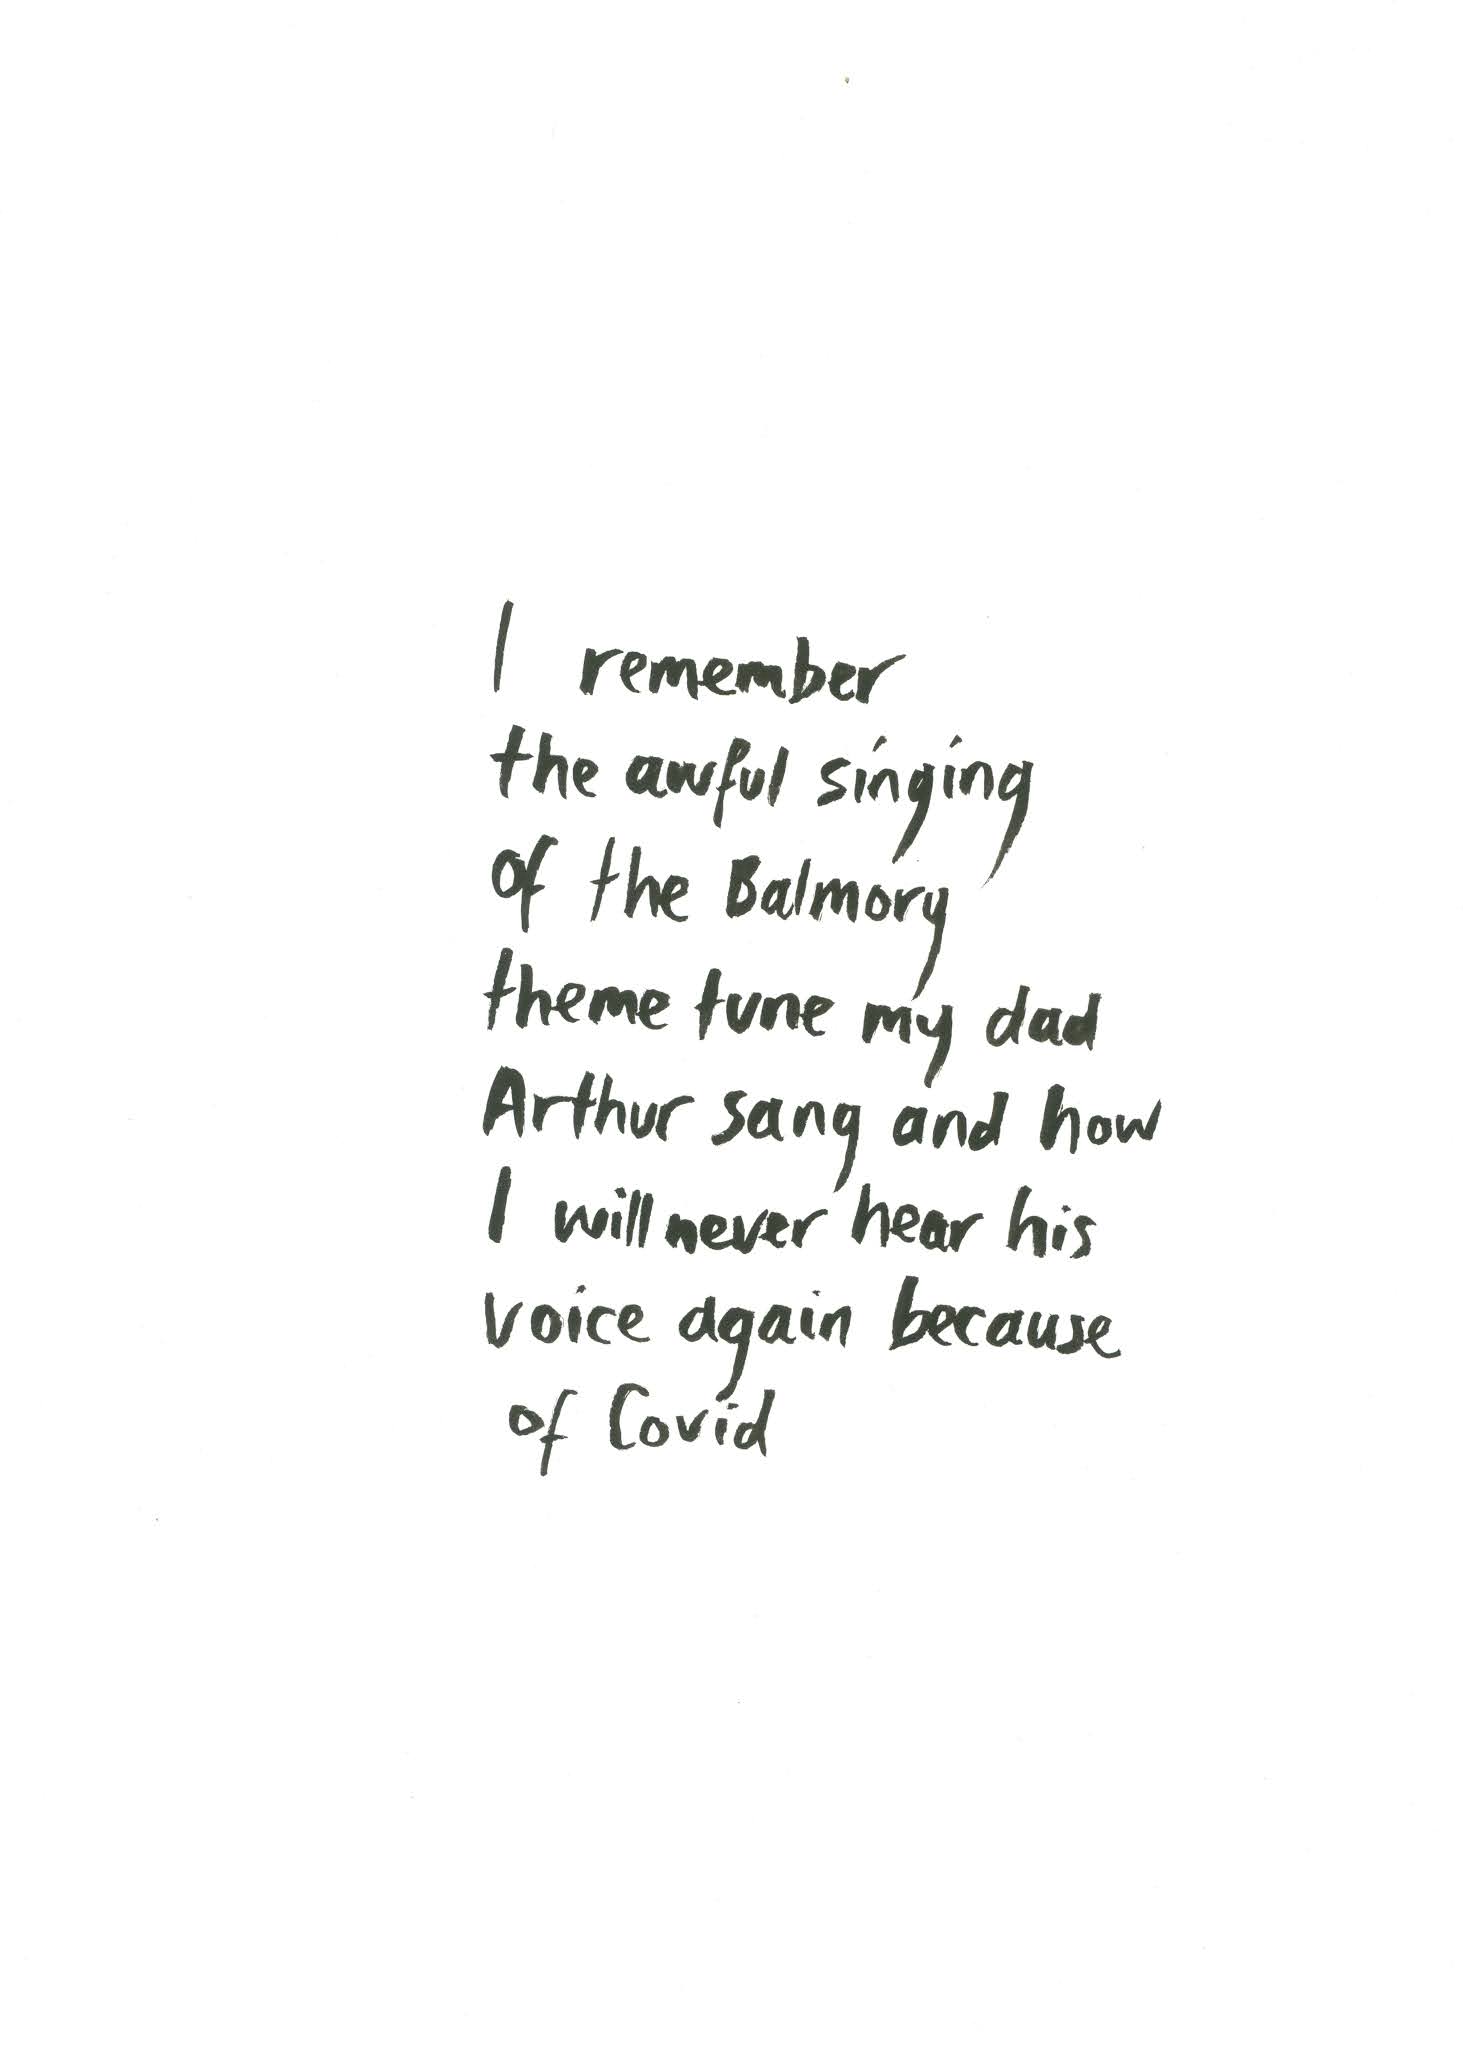 I remember
the awful singing
of the Balmory
theme tune my dad
Arthur sang and how
I will never hear his
voice again because
of Covid